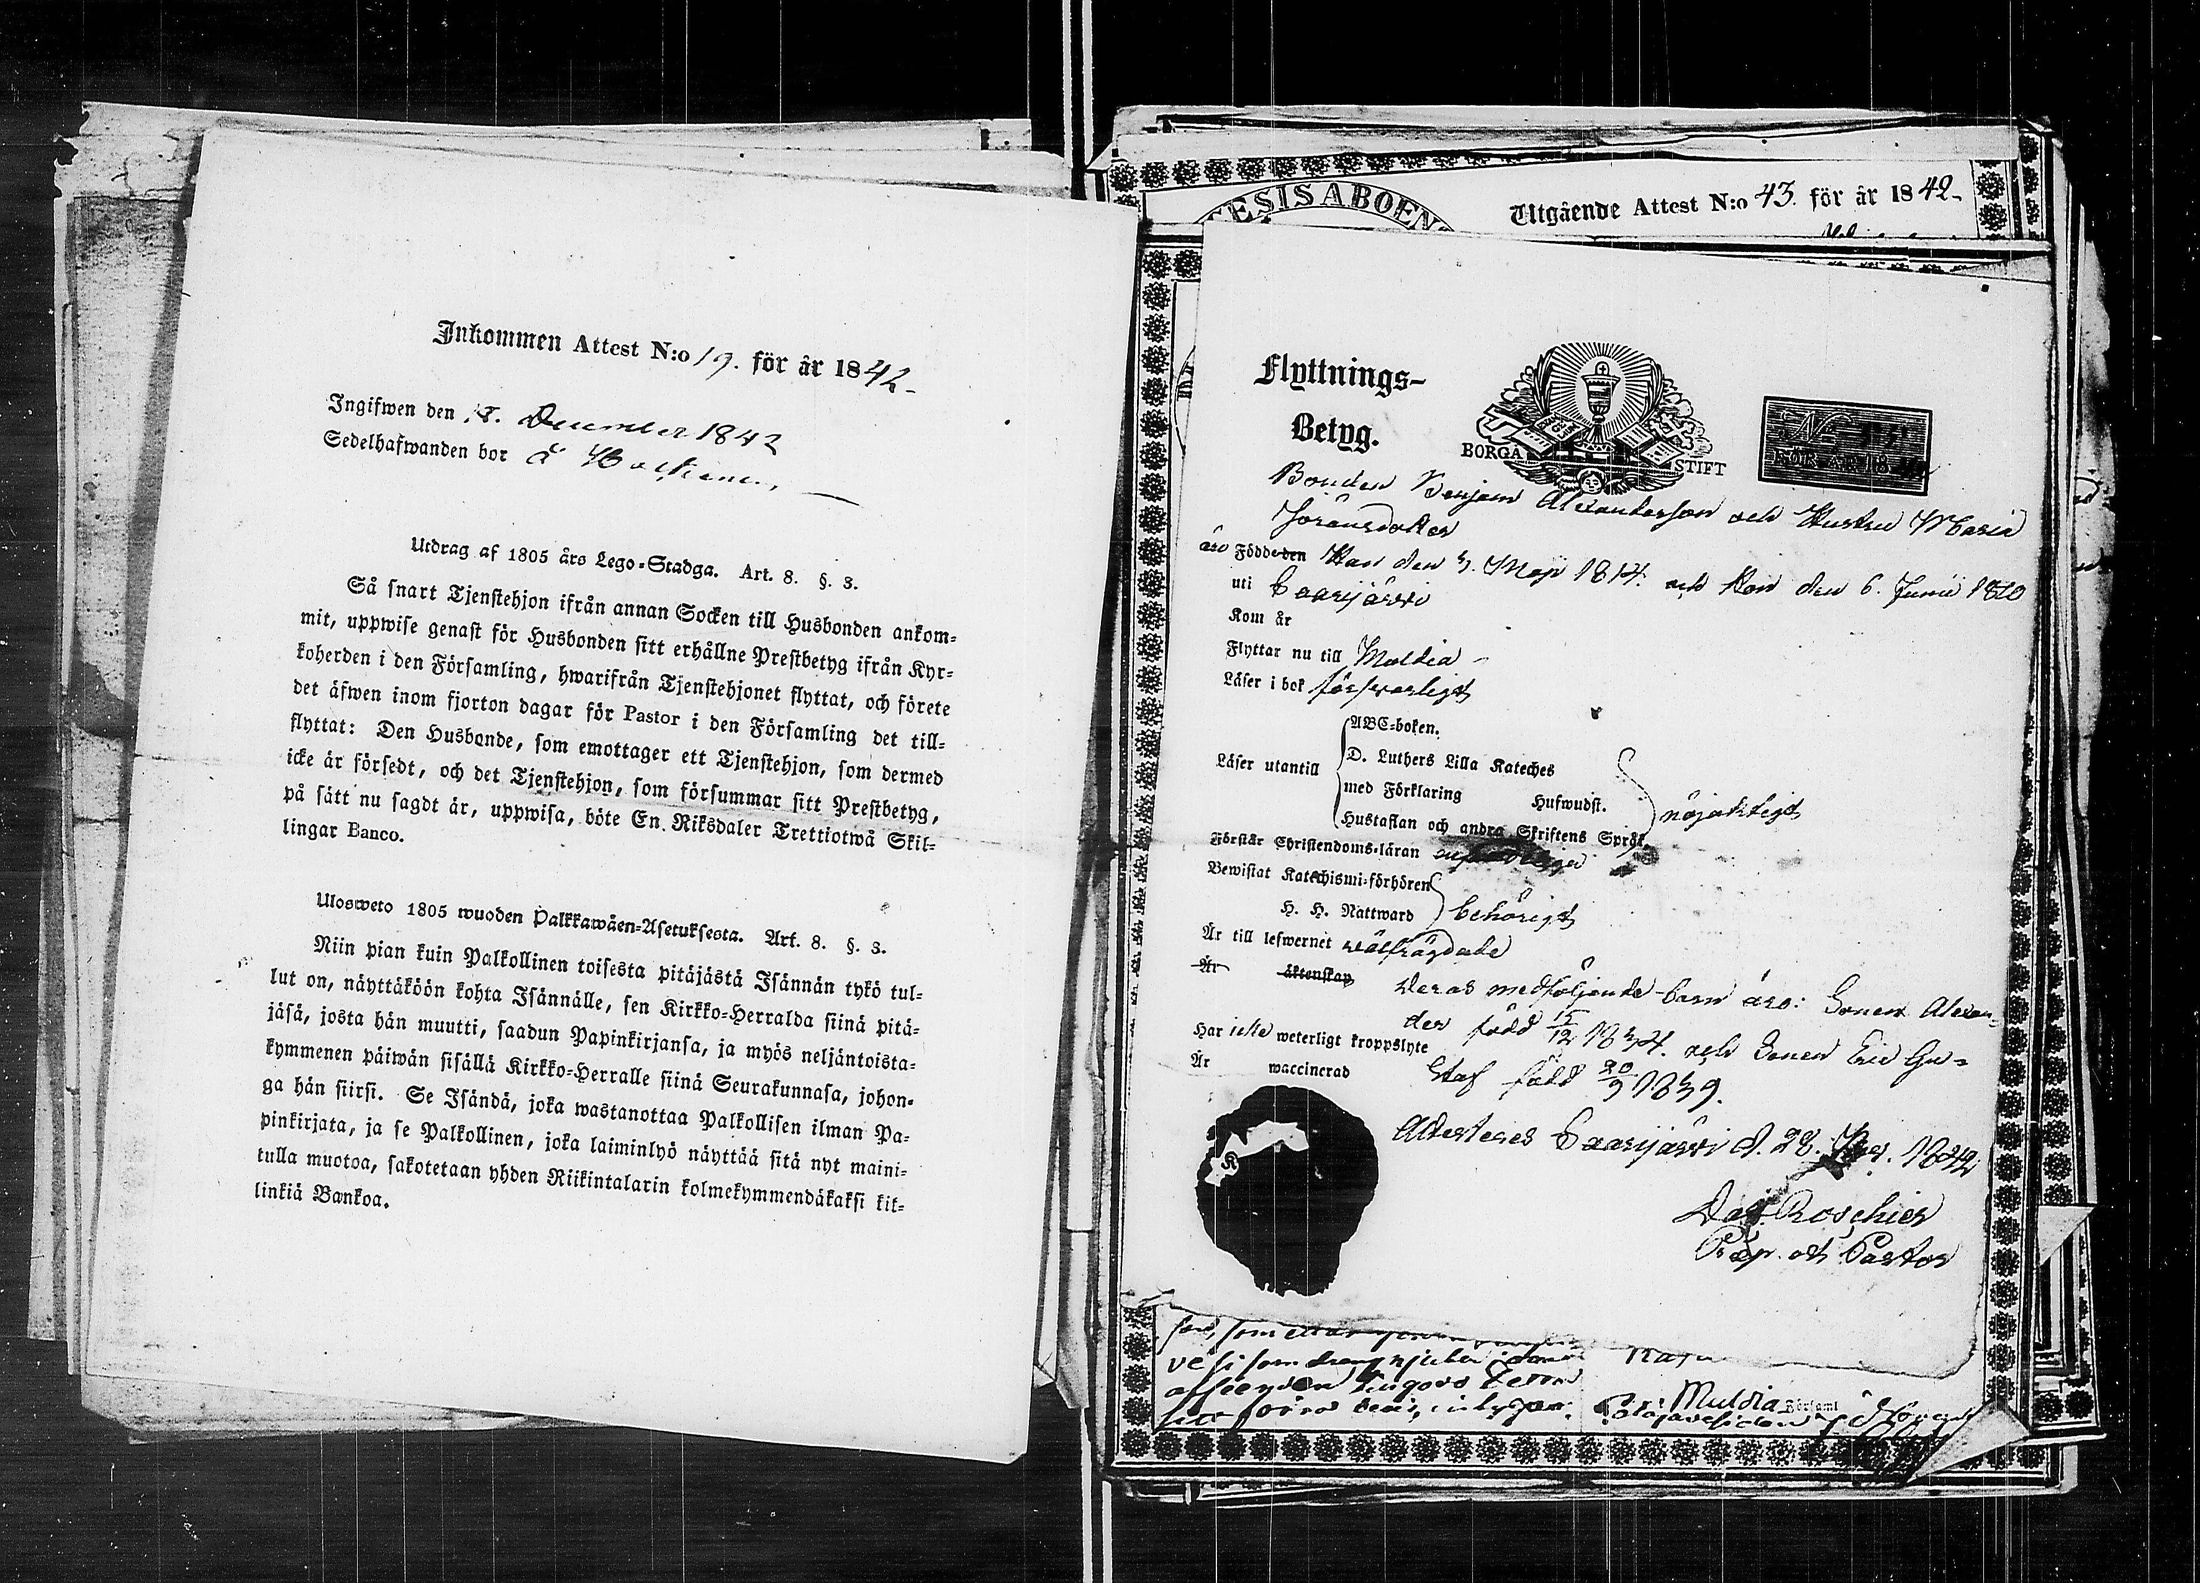 Inkommen Attest N:o 19. för år 1842-
Ingifwen den December 1842
Sedelhafwanden bor å
Utdrag af 1805 års Lego-Stadga. Art. 8. §. 3.
Så snart Tjenstehjon ifrån annan Socken till Husbonden ankom-
mit, uppwise genast för Husbonden sitt erhållne Prestbetyg ifrån Kyr-
koherden i den Församling, hwarifrån Tjenstehjonet flyttat, och förete
det äfwen inom fjorton dagar för Pastor i den Församling det till-
flyttat: Den Husbonde, som emottager ett Tjenstehjon, som dermed
icke är försedt, och det Tjenstehjon, som försummar sitt Prestbetyg,
på sätt nu sagdt är, uppwisa, böte En Riksdaler Trettiotwå Skil-
lingar Banco.
Ulosweto 1805 wuoden Palkkawäen-Asetuksesta. Art. 8. §. 3.
Niin pian kuin Palkollinen toisesta pitäjästä Isännän tykö tul-
lut on, näyttäköön kohta Isännälle, sen Kirkko-Herralda siinä pitä-
jäsä, josta hän muutti, saadun Papinkirjansa, ja myös neljäntoista-
kymmenen päiwän sisällä Kirkko-Herralle siinä Seurakunnasa, johon-
ga hän siirsi. Se Isändä, joka wastanottaa Palkollisen ilman Pa-
pinkirjata, ja se Palkollinen, joka laiminlyö näyttää sitä nyt maini-
tulla muotoa, sakotetaan yhden Riikintalarin kolmekymmendäkaksi kil-
linkiä Bankoa.
ESIS ABOEN
Utgående Attest N:o 43. för år 1842-
Flyttnings-
Betyg.
BORGÅ STIFT
N:o
FÖR ÅR 18
Bonden Benjam Alexandersson och Hustru Maria
Göransdotter
äro Födde den Han den 3. Maji 1814. och Hon den 6. Junii 1810
uti Saarijärvi
Kom år
Flyttar nu till Muldia -
Läser i bok försvarligt
Läser utantill
ABC-boken.
D. Luthers Lilla Kateches
med Förklaring Hufwudst.
Hustaflan och andra Skriftens Språk
nöjaktigt
Förstår Christendoms-läran
Bewistat Katechismi-förhören
H. H. Nattward
behörigt
Är till lefwernet välfrägdade
Är äktenskap
Deras medföljande barn äro: Sonen Alexan-
der född 15/12 1834. och Sonen Eric Gu-
staf född 20/9 1839.
Har icke weterligt kroppslyte
Är waccinerad
Attesteras Saarijärvi d. 28. 1842
K
Roschier
Præp. och Pastor
Muldia Församl